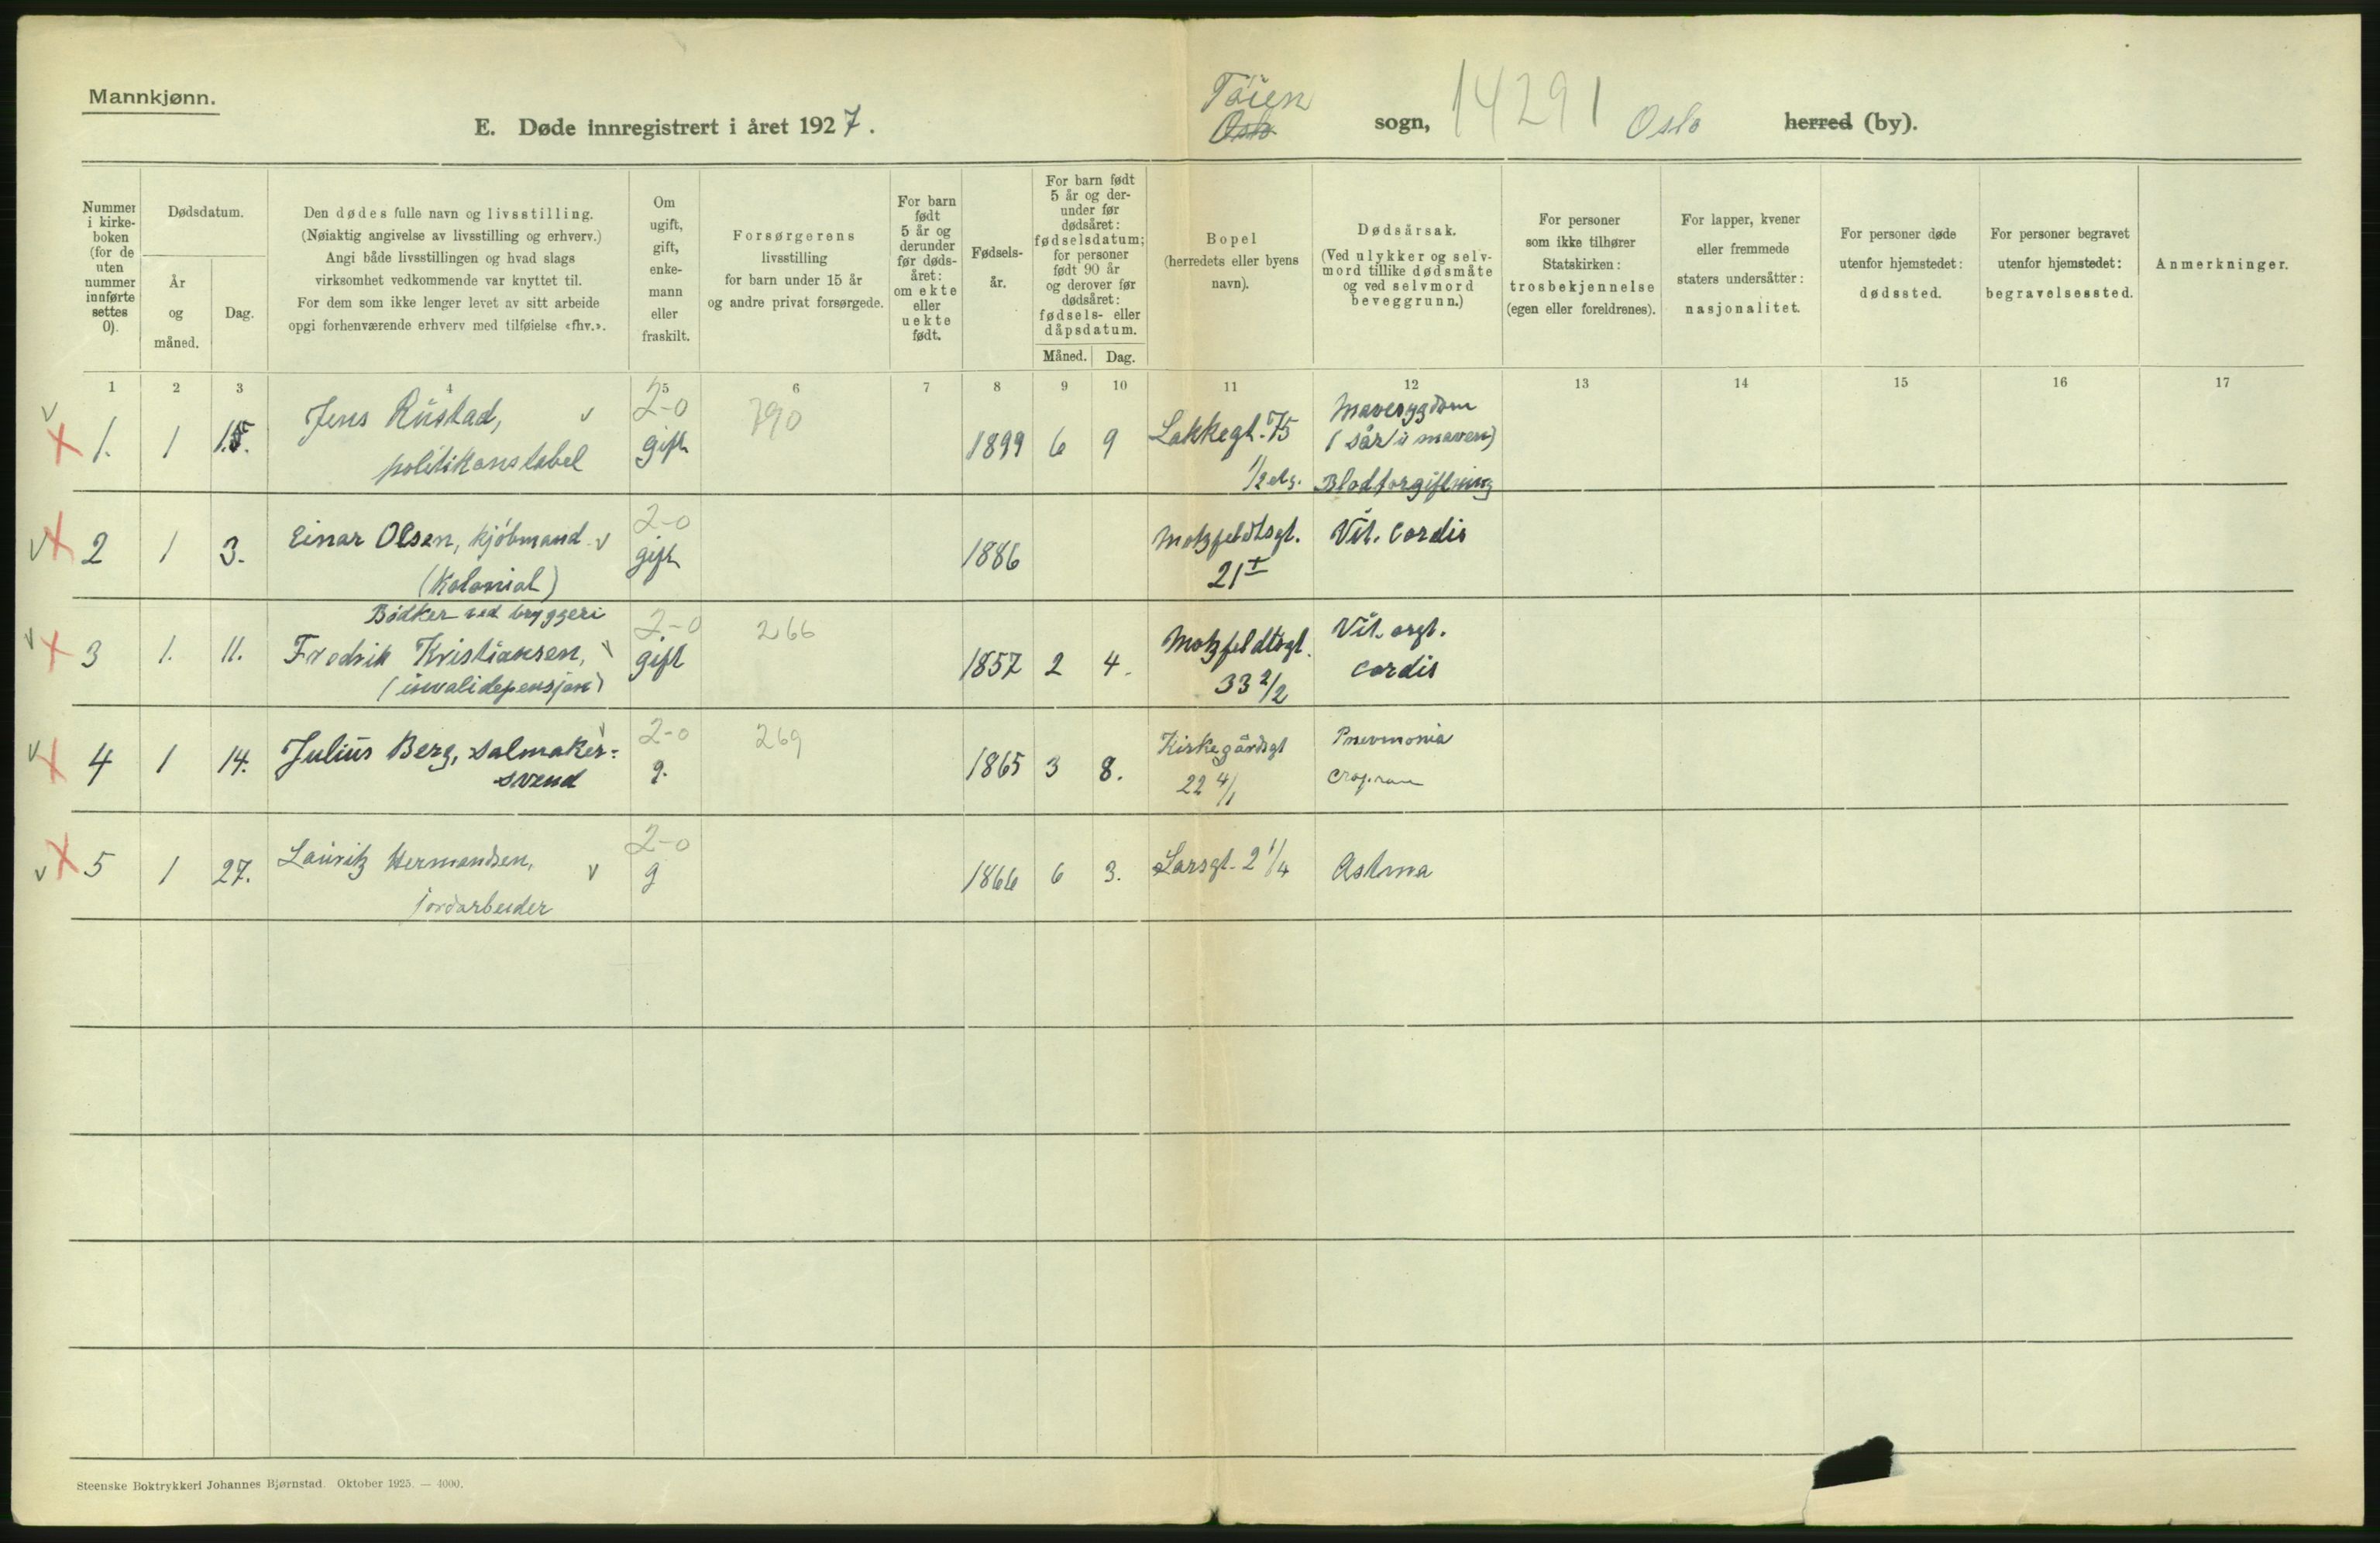 Mannkjønn.
E. Døde innregistrert i året 1927.
Tøien
Oslo
sogn, 14291 Oslo herred (by).
Nummer i kirkeboken (for de uten nummer innførte settes 0).
Dødsdatum.
År og måned.
Dag.
Den dødes fulle navn og livsstilling.
(Nøiaktig angivelse av livsstilling og erhverv.)
Angi både livsstillingen og hvad slags
virksomhet vedkommende var knyttet til.
For dem som ikke lenger levet av sitt arbeide
opgi forhenværende erhverv med tilføielse «fhv.».
Om ugift, gift, enkemann eller fraskilt.
Forsørgerens
livsstilling
for barn under 15 år
og andre privat forsørgede.
For barn født 5 år og derunder før dødsåret: om ekte eller uekte født.
Fødselsår.
For barn født 5 år og derunder før dødsåret: fødselsdatum; for personer født 90 år og derover før dødsåret: fødsels- eller dåpsdatum.
Måned. Dag.
Bopel
(herredets eller byens
navn).
Dødsårsak.
(Ved ulykker og selvmord tillike dødsmåte og ved selvmord beveggrunn.)
For personer
som ikke tilhører
Statskirken:
trosbekjennelse
(egen eller foreldrenes).
For lapper, kvener
eller fremmede
staters undersåtter:
nasjonalitet.
For personer døde
utenfor hjemstedet:
dødssted.
For personer begravet
utenfor hjemstedet:
begravelsessted.
Anmerkninger.
1 2 3 4 5 6 7 8 9 10 11 12 13 14 15 16 17
2-0 790 Mavesygdom
1. 1 15. Jens Rustad, gift 1899 6 9 Lakkegt. 75 (sår i maven)
politikonstabel 1/2 etg. Blodforgiftning
2-0
2 1 3. Einar Olsen, kjøbmand gift 1886 Motzfeldtsgt. Vit. cordis
(Kolonial) 21 I
Bødker ved bryggeri 2-0 266
3 1. 11. Fredrik Kristiansen, gift 1857 2 4. Motzfeldtsgt. Vit. orgt.
(invalidepensjon) 33 2/2 cordis
2-0 269
4 1 14. Julius Berg, salmaker- g. 1865 3 8. Kirkegårdsgt Pnevmonia
svend 22 4/1
2-0
5 1 27. Lauritz Hermandsen, g 1866 6 3. Larsgt. 2 1/4 Astma
jordarbeider
Steenske Boktrykkeri Johannes Bjørnstad. Oktober 1925. — 4000.